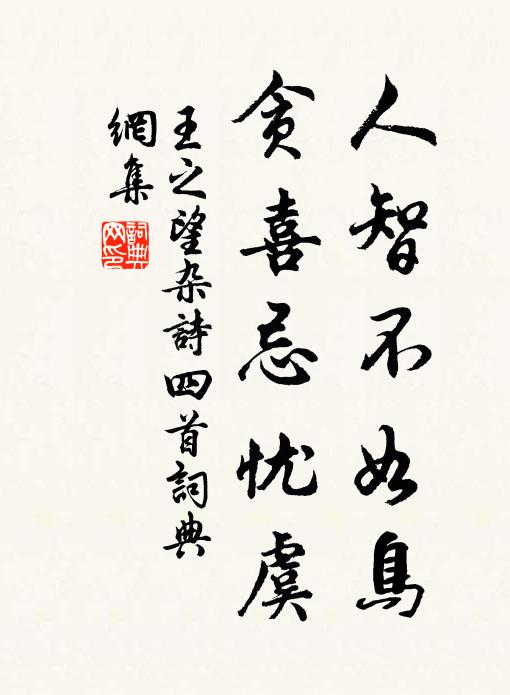 人智不如鳥
貪喜忌忧虞
王之望杂詩四首詞典
網集
詞典
网印